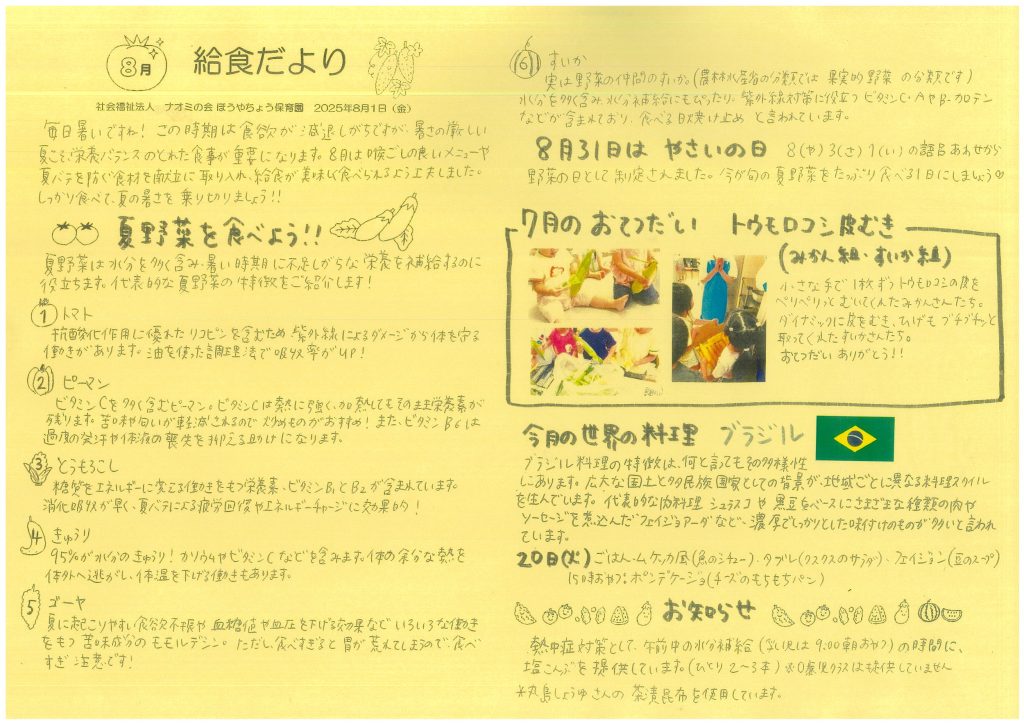 8月
給食だより
社会福祉法人 ナオミの会 ほうやちょう保育園 2025年8月1日(金)
毎日暑いですね!この時期は食欲が減退しがちですが、暑さの厳しい
夏こそ、栄養バランスのとれた食事が重要になります。8月は喉ごしの良いメニューや
夏バテを防ぐ食材を献立に取り入れ、給食が美味しく食べられるよう工夫しました。
しっかり食べて、夏の暑さを乗り切りましょう!!
夏野菜を食べよう!!
夏野菜は水分を多く含み、暑い時期に不足しがちな栄養を補給するのに
役立ちます。代表的な夏野菜の特徴をご紹介します!
1 トマト
抗酸化作用に優れたリコピンを含むため、紫外線によるダメージから体を守る
働きがあります。油を使った調理法で吸収率がUP!
2 ピーマン
ビタミンCを多く含むピーマン。ビタミンCは熱に強く、加熱してもその主栄養素が
残ります。苦味や匂いが軽減されるので炒めものがおすすめ!また、ビタミンB6は
過度の発汗や体液の喪失を抑える助けになります。
3 とうもろこし
糖質をエネルギーに変える働きをもつ栄養素、ビタミンB1とB2が含まれています。
消化吸収が早く、夏バテによる疲労回復やエネルギーチャージに効果的!
4 きゅうり
95%が水分のきゅうり!カリウムやビタミンCなどを含みます。体の余分な熱を
体外へ逃がし、体温を下げる働きもあります。
5 ゴーヤ
夏に起こりやすい食欲不振や血糖値や血圧を下げる効果など いろいろな働き
をもつ 苦味成分のモモルデシン。ただし、食べすぎると胃が荒れてしまうので、食べ
すぎ注意です!
6 すいか
実は野菜の仲間のすいか。(農林水産省の分類では 果実的野菜 の分類です)
水分を多く含み、水分補給にもぴったり。紫外線対策に役立つ ビタミンC・AやB-カロテン
などが含まれており、食べる日焼け止め と言われています。
8月31日は やさいの日 8(や)3(さ)1(い)の語呂あわせから
野菜の日として制定されました。今が旬の夏野菜をたっぷり食べる31日にしましょう♡
7月の おてつだい トウモロコシ皮むき
(みかん組・すいか組)
小さな手で1枚ずつトウモロコシの皮を
ペリペリッとむいてくれたみかんさんたち。
ダイナミックに皮をむき、ひげもブチブチッと
取ってくれたすいかさんたち。
おてつだい ありがとう!!
今月の世界の料理 ブラジル
ブラジル料理の特徴は、何と言ってもその多様性
にあります。広大な国土と多民族国家としての背景が、地域ごとに異なる料理スタイル
を生んでいます。代表的な肉料理 シュラスコ や 黒豆をベースにさまざまな種類の肉や
ソーセージを煮込んだ フェイジョアーダなど、濃厚でしっかりとした味付けのものが多いと言われ
ています。
20日(火) ごはん・ムケッカ風(魚のシチュー)・タブレ(クスクスのサラダ)・フェイジョン(豆のスープ)
15時おやつ: ポンデケージョ(チーズのもちもちパン)
お知らせ
熱中症対策として、午前中の水分補給(乳児は9:00朝おやつ)の時間に、
塩こんぶを提供しています。(ひとり2~3本)※0歳児クラスは提供していません
*丸島しょうゆさんの 茶漬昆布を使用しています。